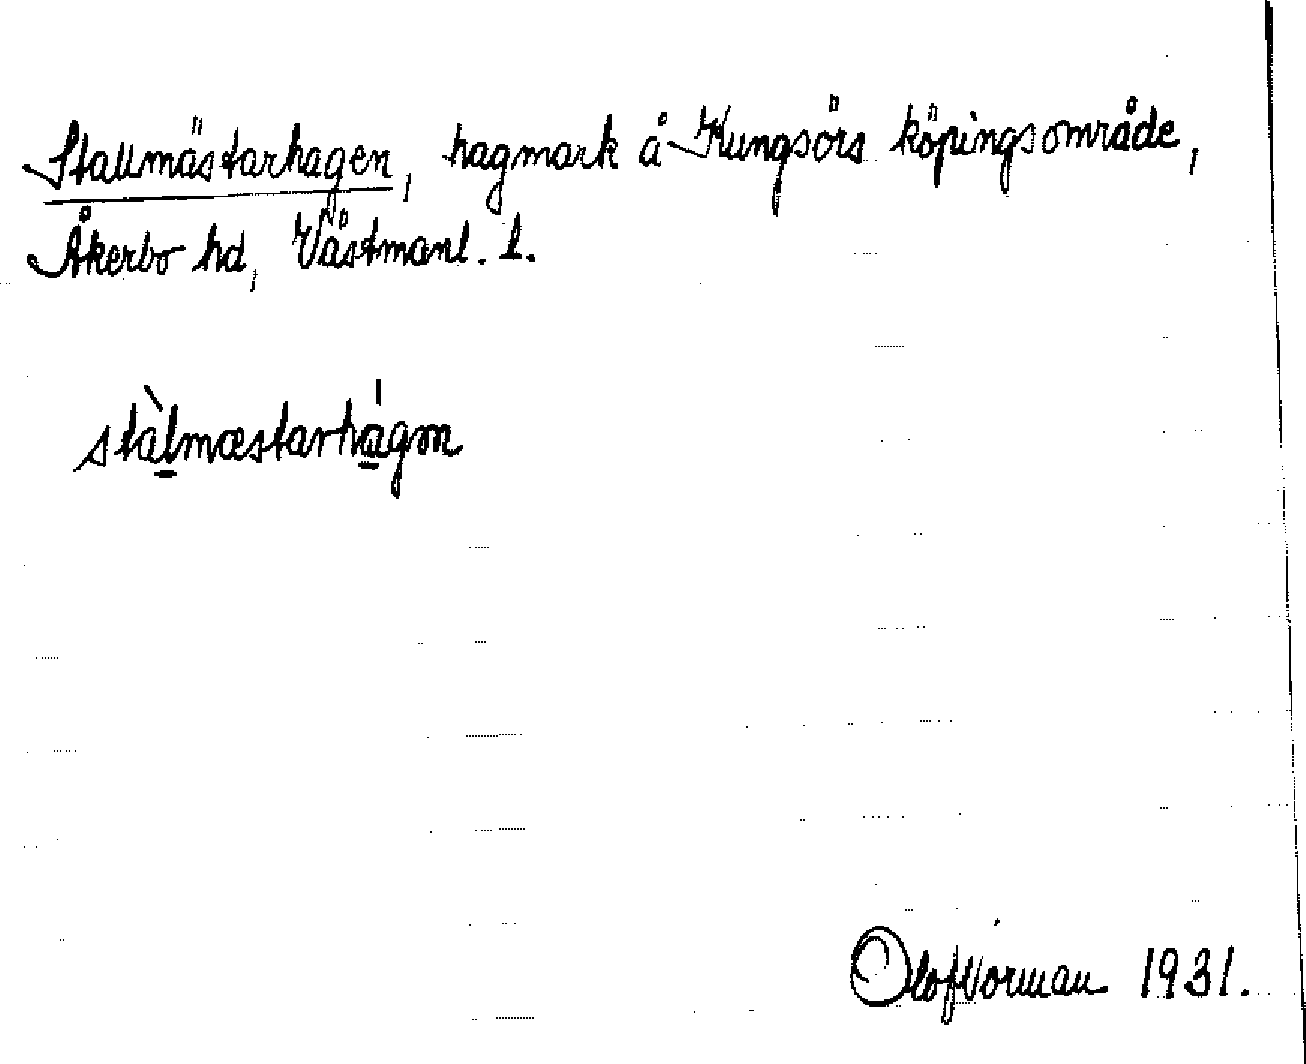 Stallmästarhagen, hagmark å Kungsörs köpingsområde,
Åkerbo hd, Västmanl. l.
stàlmæstarhágɷn
Olof Norman 1931.